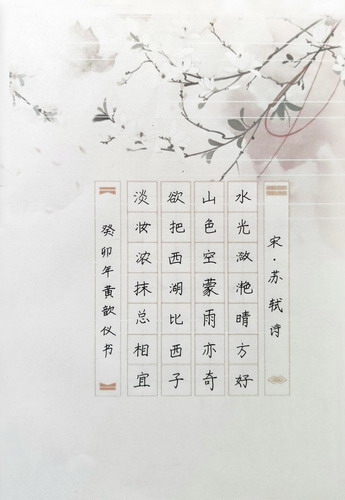 宋·苏轼诗
水光潋滟晴方好
山色空蒙雨亦奇
欲把西湖比西子
淡妆浓抹总相宜
癸卯年黄歆仪书